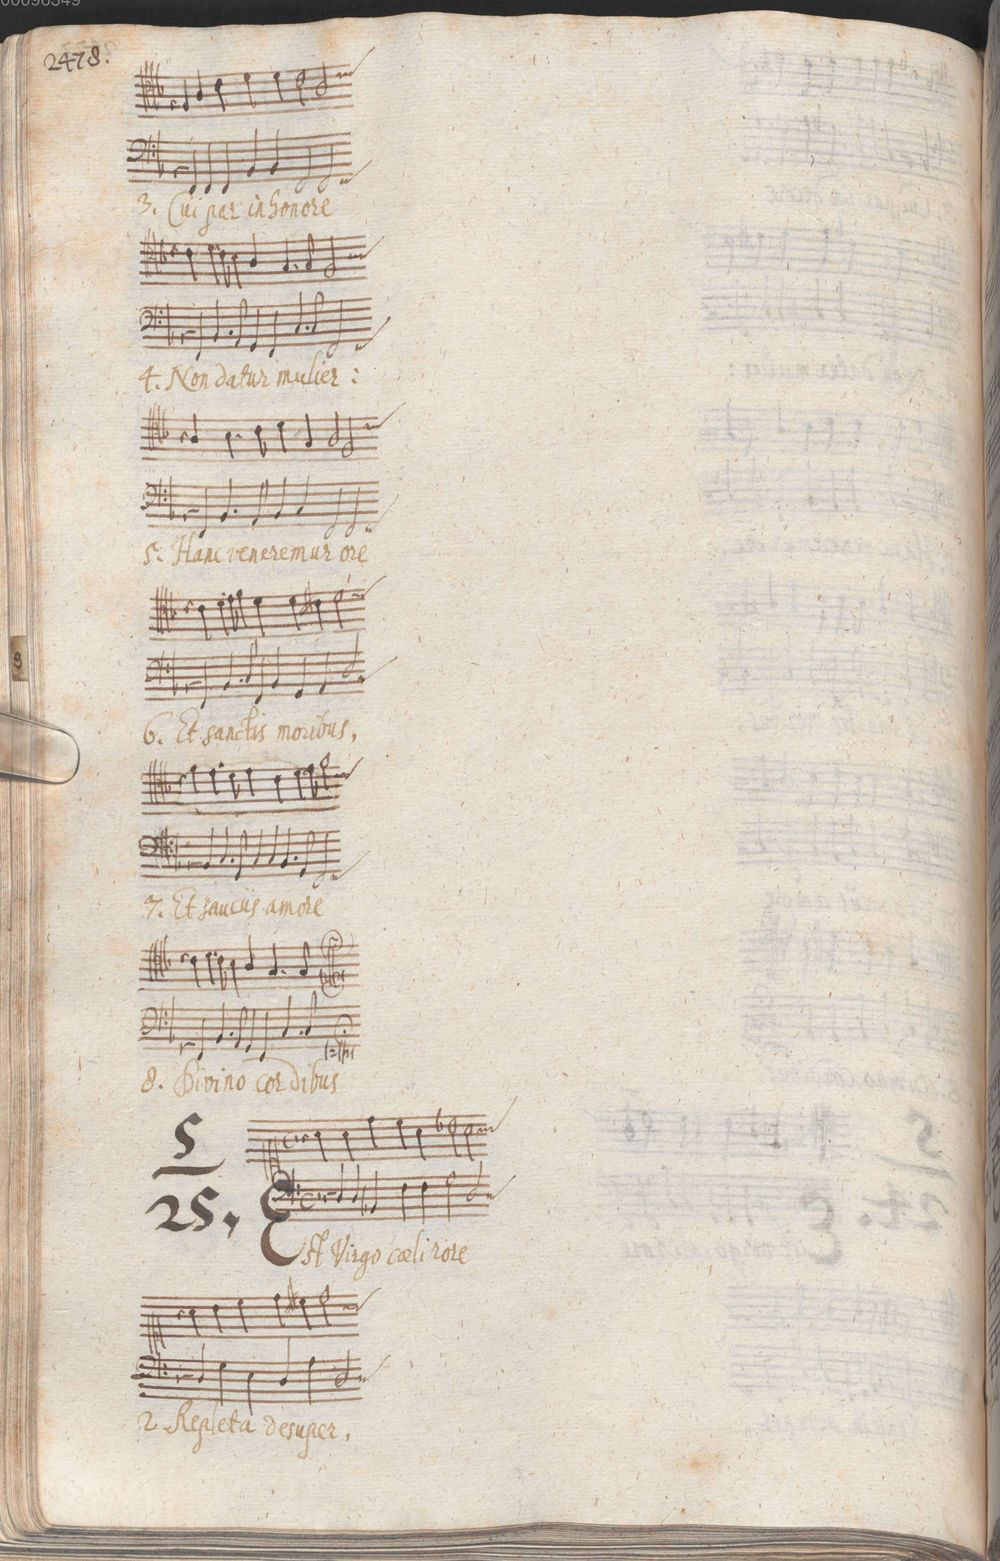 00096349
2478.
3. Cui par in honore
4. Non datur mulier :
5. Hanc veneremur ore
6. Et sanctis moribus,
7. Et sauciis amore
8. Divino cordibus
5
25.
Est Virgo cœli rore
2. Repleta desuper.